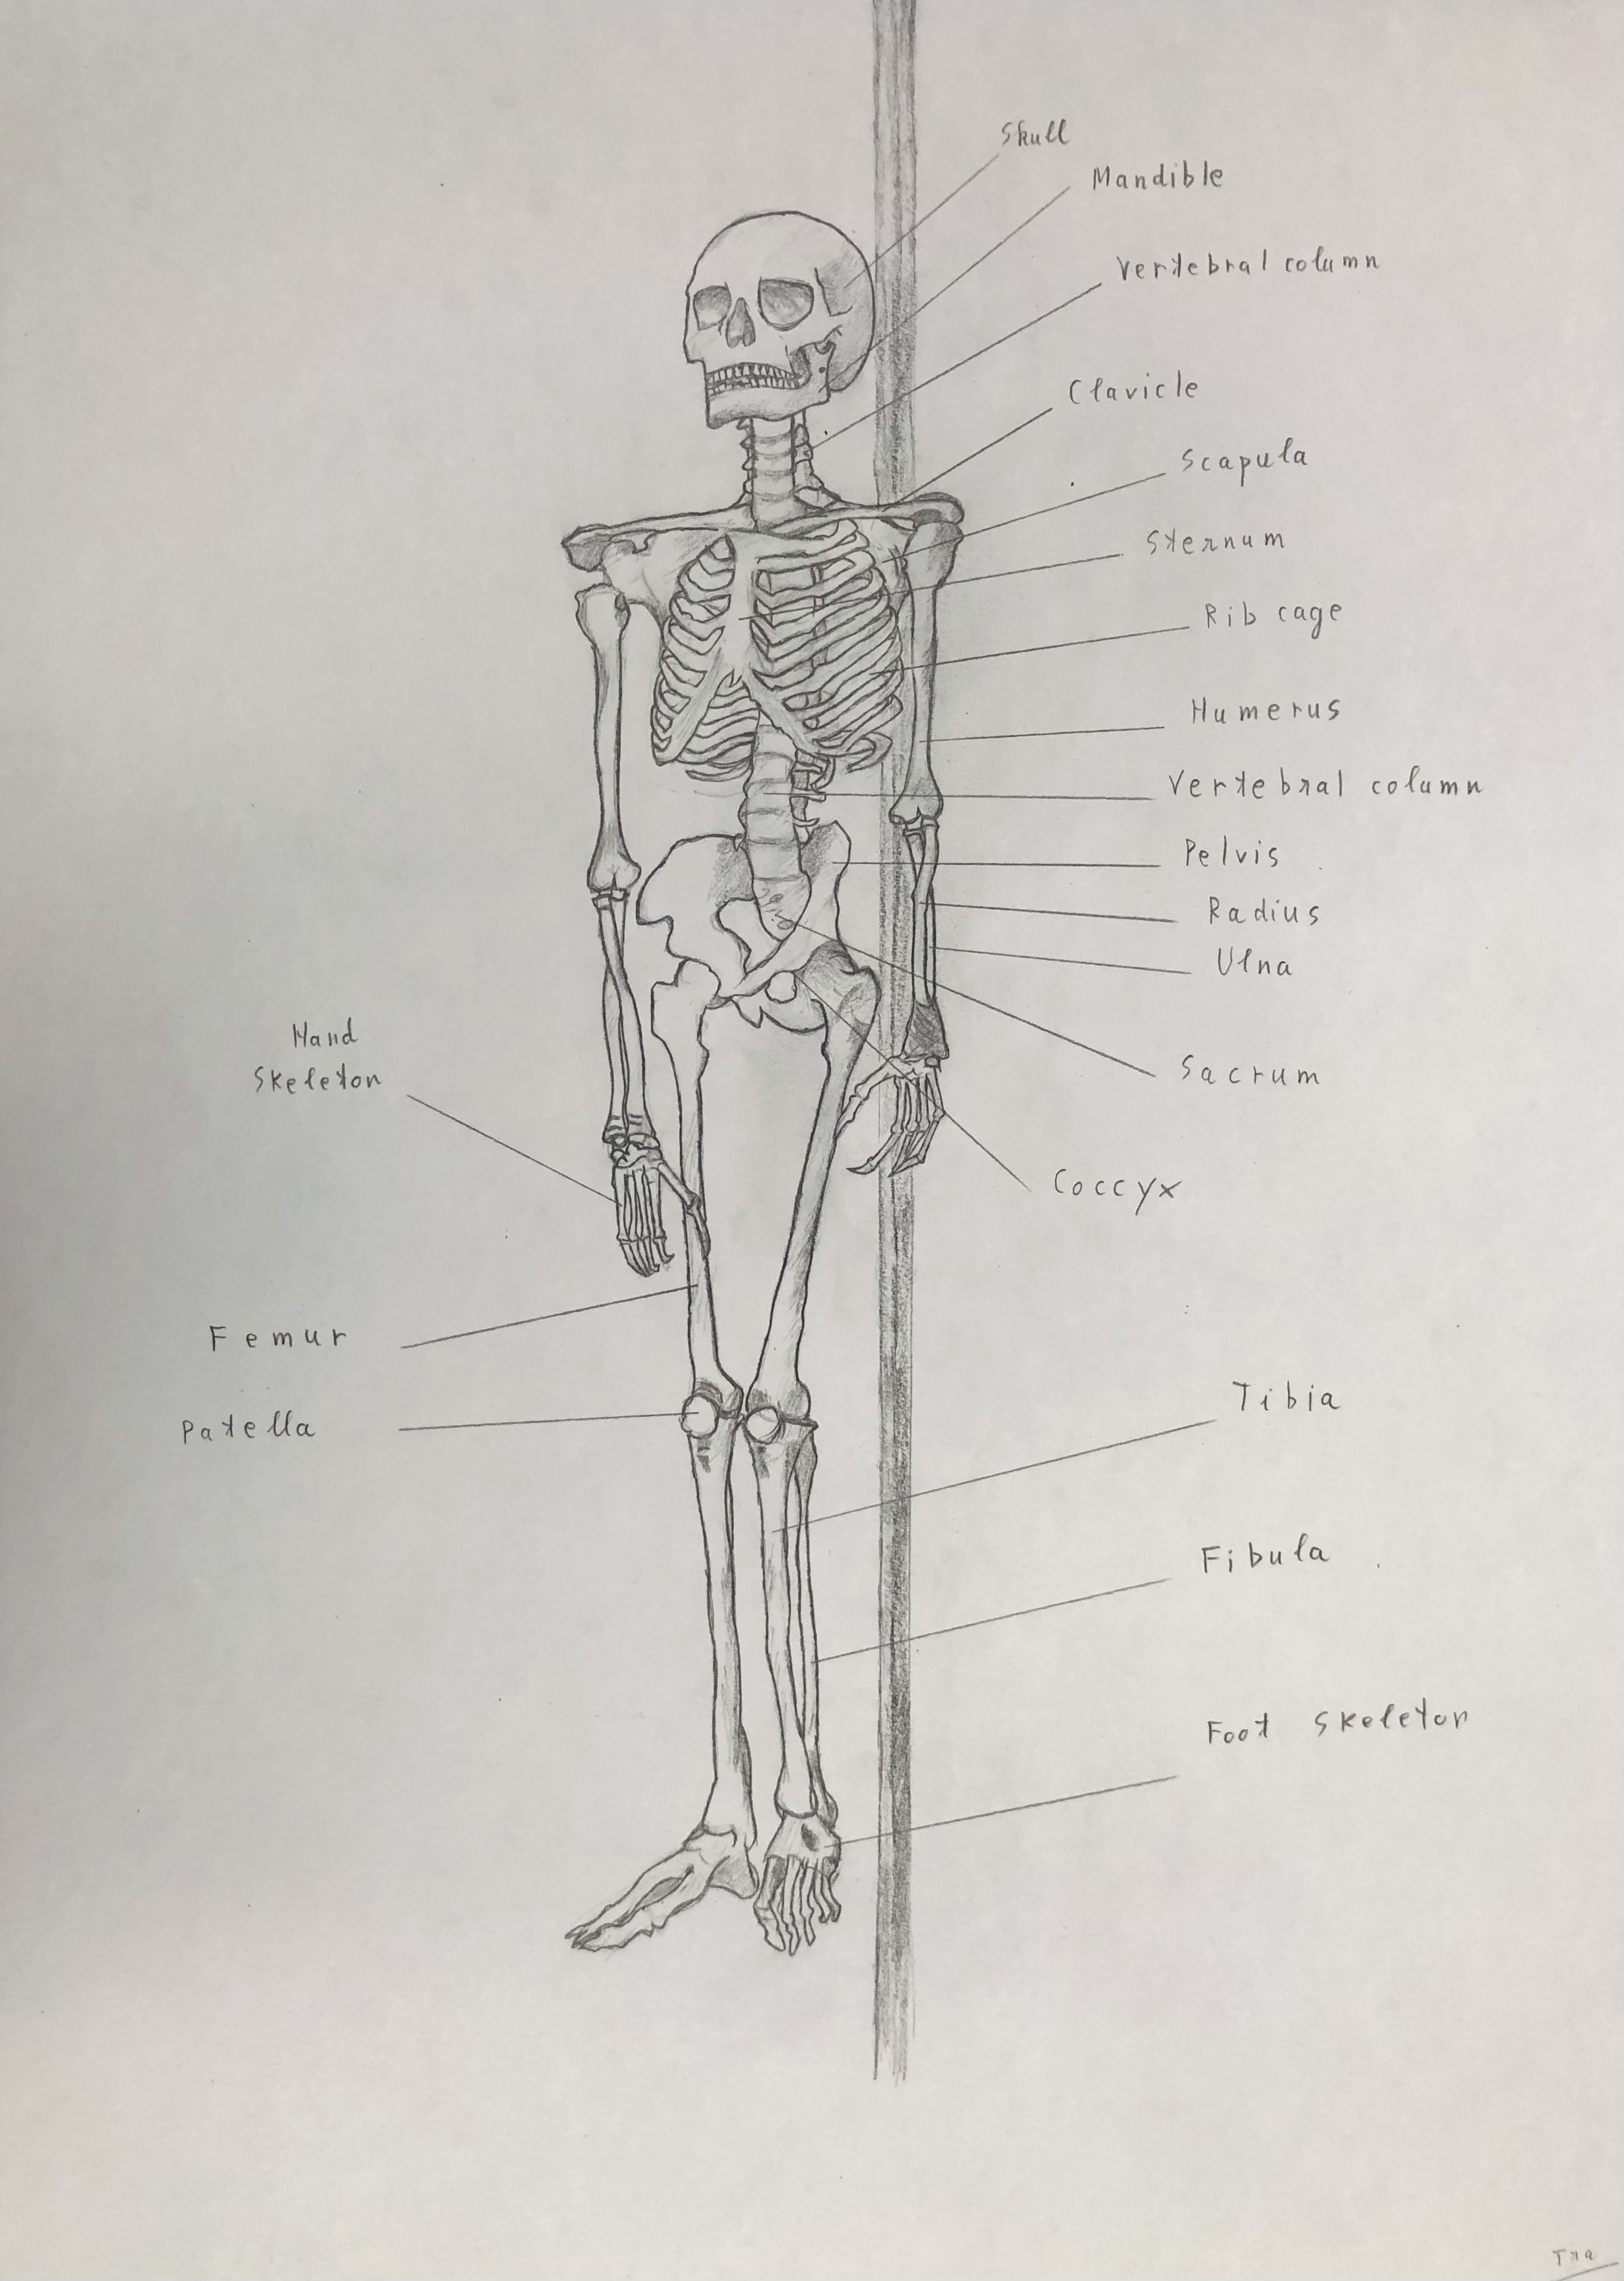 Skull
Mandible
Vertebral column
Clavicle
Scapula
Sternum
Rib cage
Humerus
Vertebral column
Pelvis
Radius
Ulna
Hand
Skeleton
Sacrum
Coccyx
Femur
Patella
Tibia
Fibula
Foot Skeleton